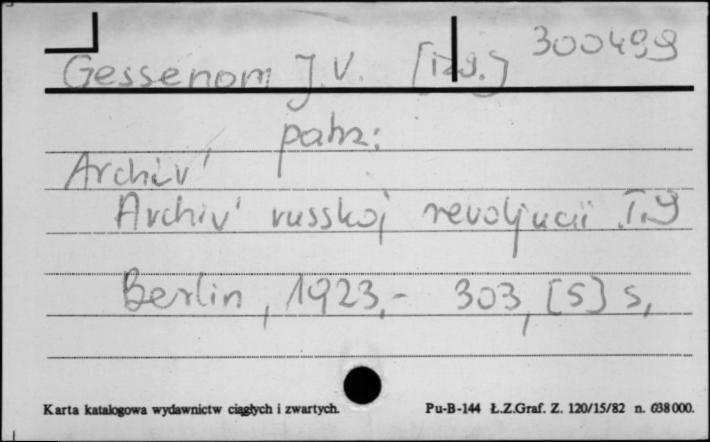 300499
Gessenom J.V. [izd.]
patrz:
Archiv'
Archiv' russkoj revoljucii T.9
Berlin, 1923,- 303, [5] s,
Karta katalogowa wydawnictw ciągłych i zwartych. Pu-B-144 Ł.Z.Graf. Z. 120/15/82 n. 638000.